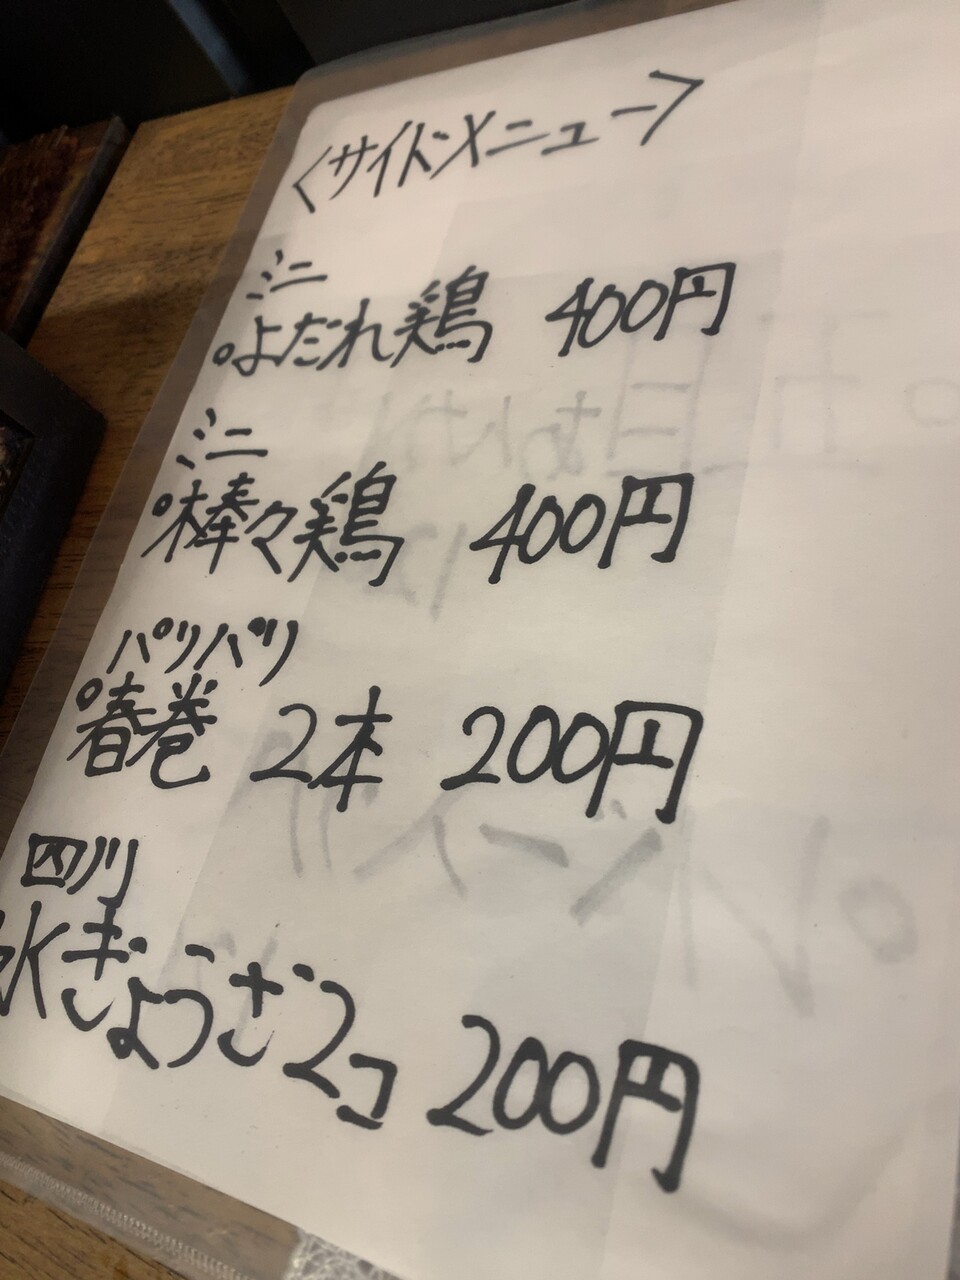 <サイドメニュー>
ミニ
。よだれ鶏 400円
ミニ
。棒々鶏 400円
パリパリ
。春巻 2本 200円
四川
水ぎょうざ2コ 200円